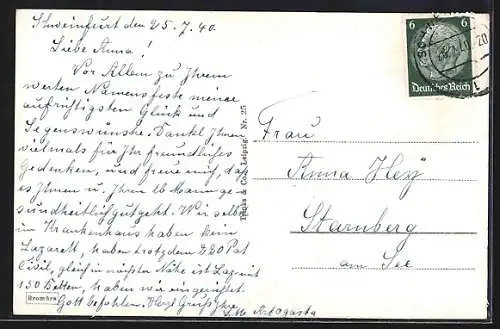 Schweinfurt den 25.7.40.
Liebe Anna!
Vor Allem zu Ihrem
werten Namensfeste meine
aufrichtigsten Glück und
Segenswünsche. Dankl Ihnen
vielmals für Ihr freundliches
Gedenken, und freue mich, daß
es Ihnen u. Ihren Mann ge-
sundheitlich gut geht. Wir selbst
im Krankenhaus haben kein
Lazarett, haben trotzdem 220 Pat
Civil, gleich in nächster Nähe ist Laz mit
130 Betten, haben wir eingerichtet.
Gott befohlen. Herzl Grüße Ihre
Artogasta
Bromüra
Trinks & Co., Leipzig. Nr. 25
6 6
Deutsches Reich
Frau
Anna Hey
Starnberg
am See